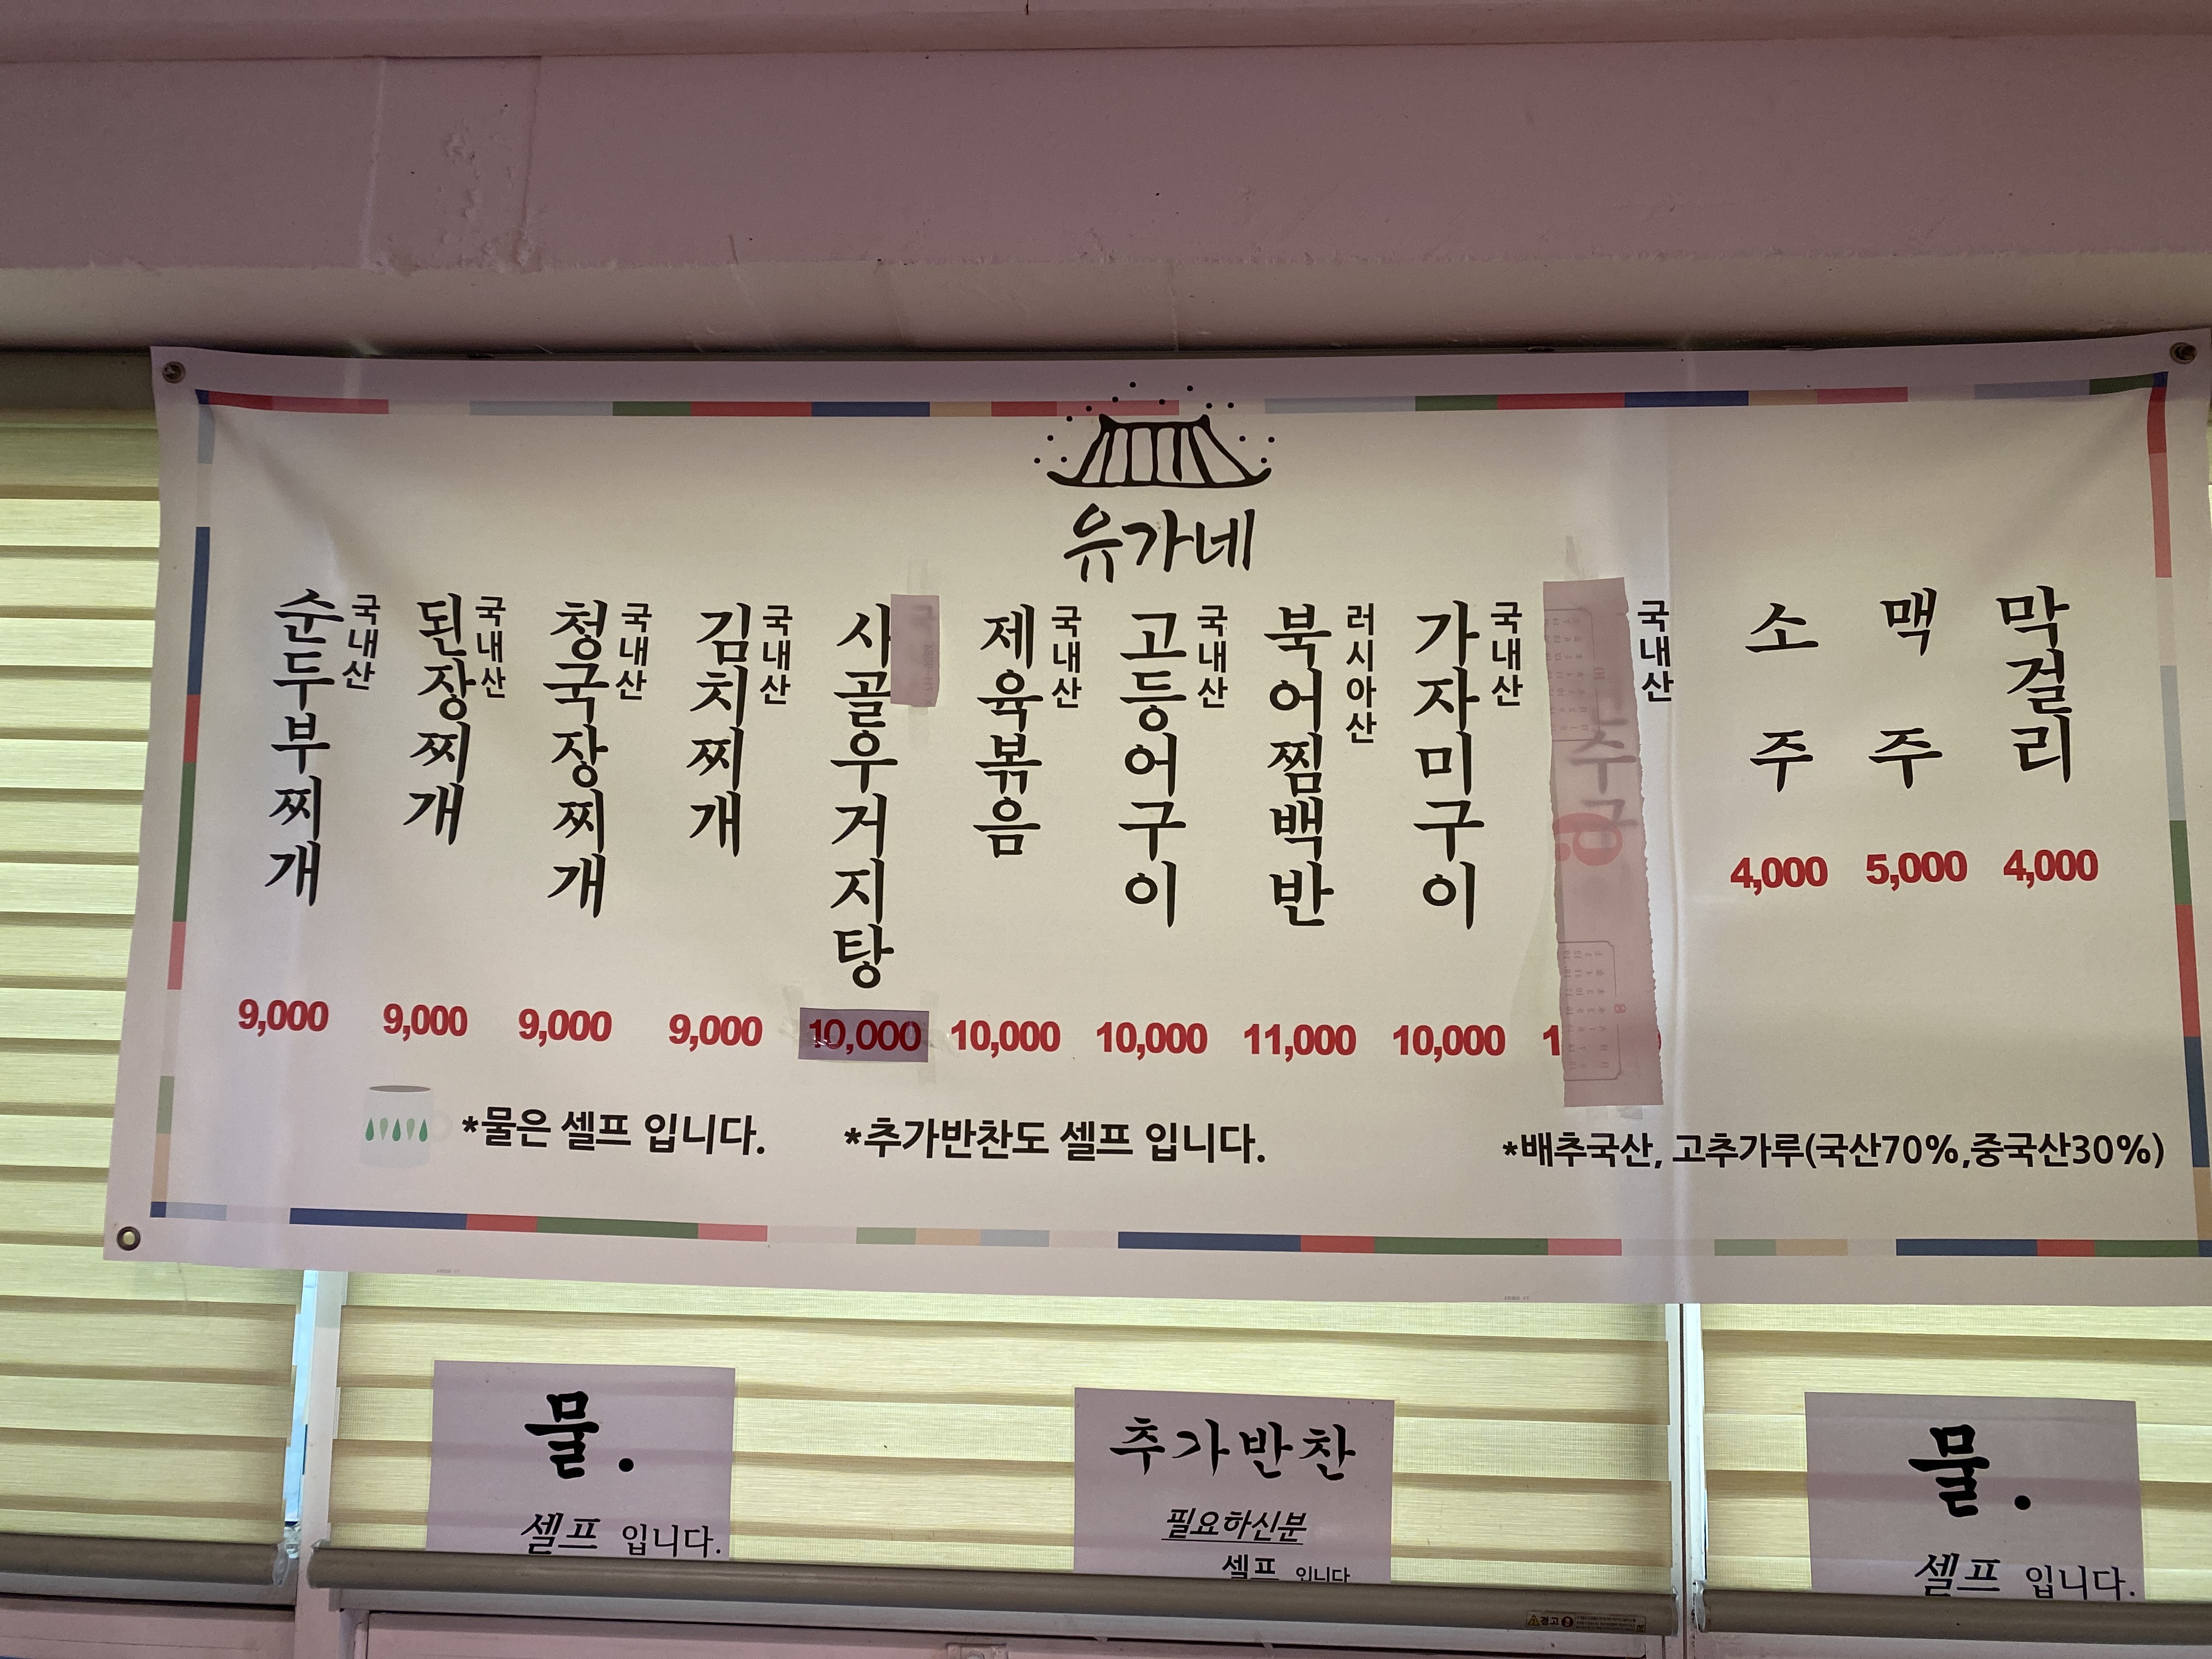 유가네
순두부찌개 국내산 9,000
된장찌개 국내산 9,000
청국장찌개 국내산 9,000
김치찌개 국내산 9,000
사골우거지탕 10,000
제육볶음 국내산 10,000
고등어구이 국내산 10,000
북어찜백반 러시아산 11,000
가자미구이 국내산 10,000
국내산
소주 4,000
맥주 5,000
막걸리 4,000
*물은 셀프 입니다.
*추가반찬도 셀프 입니다.
*배추국산, 고추가루(국산70%,중국산30%)
물.
셀프 입니다.
추가반찬
필요하신분
셀프 입니다
물.
셀프 입니다.
경고